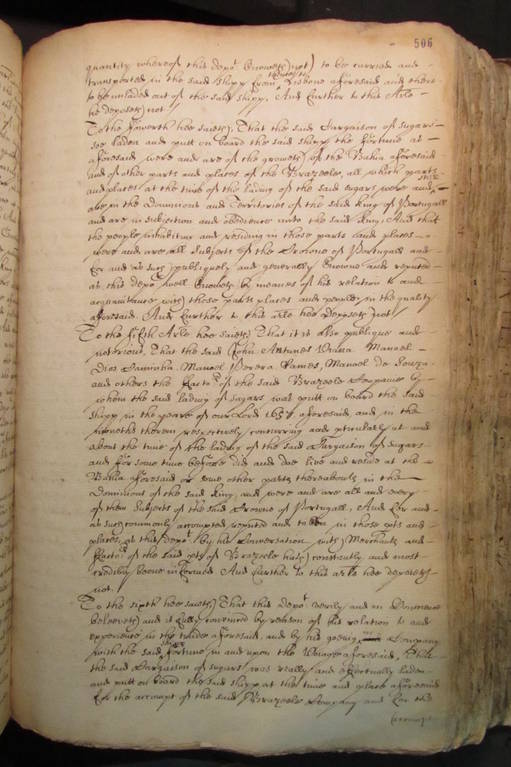 506
quantity whereof this depot. knoweth not) to be carried and
transported in the said shipp from Lisbone aforesaid and there
to be unladed out of the said shipp. And further to this Arle
he deposeth not
To the fowerth hee saieth, That the said Cargaison of sugars
soe laden and putt on board the said shipp the Fortune as
aforesaid were and are of the growth of the Bahia aforesaid
and of other parts and places of the Brazeele, all which parts
and places at the time of the lading of the said sugars were and still
are in the dominions and Territories of the said King of Portugall
and are in subjection and obedience unto the said King, And that
the people inhabiting and residing in those parts and places
were and are all Subjects of the Crowne of Portugall and
for and as such publiquely and generally knowne and reputed
as this depot. well knoweth by meanes of his relation to and
acquaintance with those parts places and people in the quality
aforesaid. And further to this Arle hee deposeth not
To the fifth Arle hee saieth, That it is also publique and
notorious, That the said John Antunes Manoel
Dias Manoel Perera Manoel de Souza
and others the Factors of the said Brazeele Company by
whom the said lading of sugars was putt on board the said
shipp in the yeare of our Lord 1657 aforesaid, and in the
moneths therein respectively concurring and pticularly at and
about the time of the lading of the said Cargaison of sugars
and for some time before did and doe live and reside at the
Bahia aforesaid or some other parts thereabouts in the
Dominions of the said King and were and are all and every
of them Subjects of the said Crowne of Portugall, And for and
as such commonly accompted reputed and taken in those pts and
places, as this depot. by his Conversation with Merchants and
Factors of the said pts of Brazeele hath constantly and most
credibly beene informed. And further to this arle hee deposeth
not.
To the sixth hee saieth, That this depot. verily and in Conscience
beleeveth and is fully perswaded by reason of his relation to and
experience in the trade aforesaid, and by his goeing Company
with the said shipp Fortune in and upon the Voiage aforesaid, That
the said Cargaison of sugars was really and effectually laden
and putt on board the said shipp at the time and place aforesaid
for the accompt of the said Brazeele Company and for the